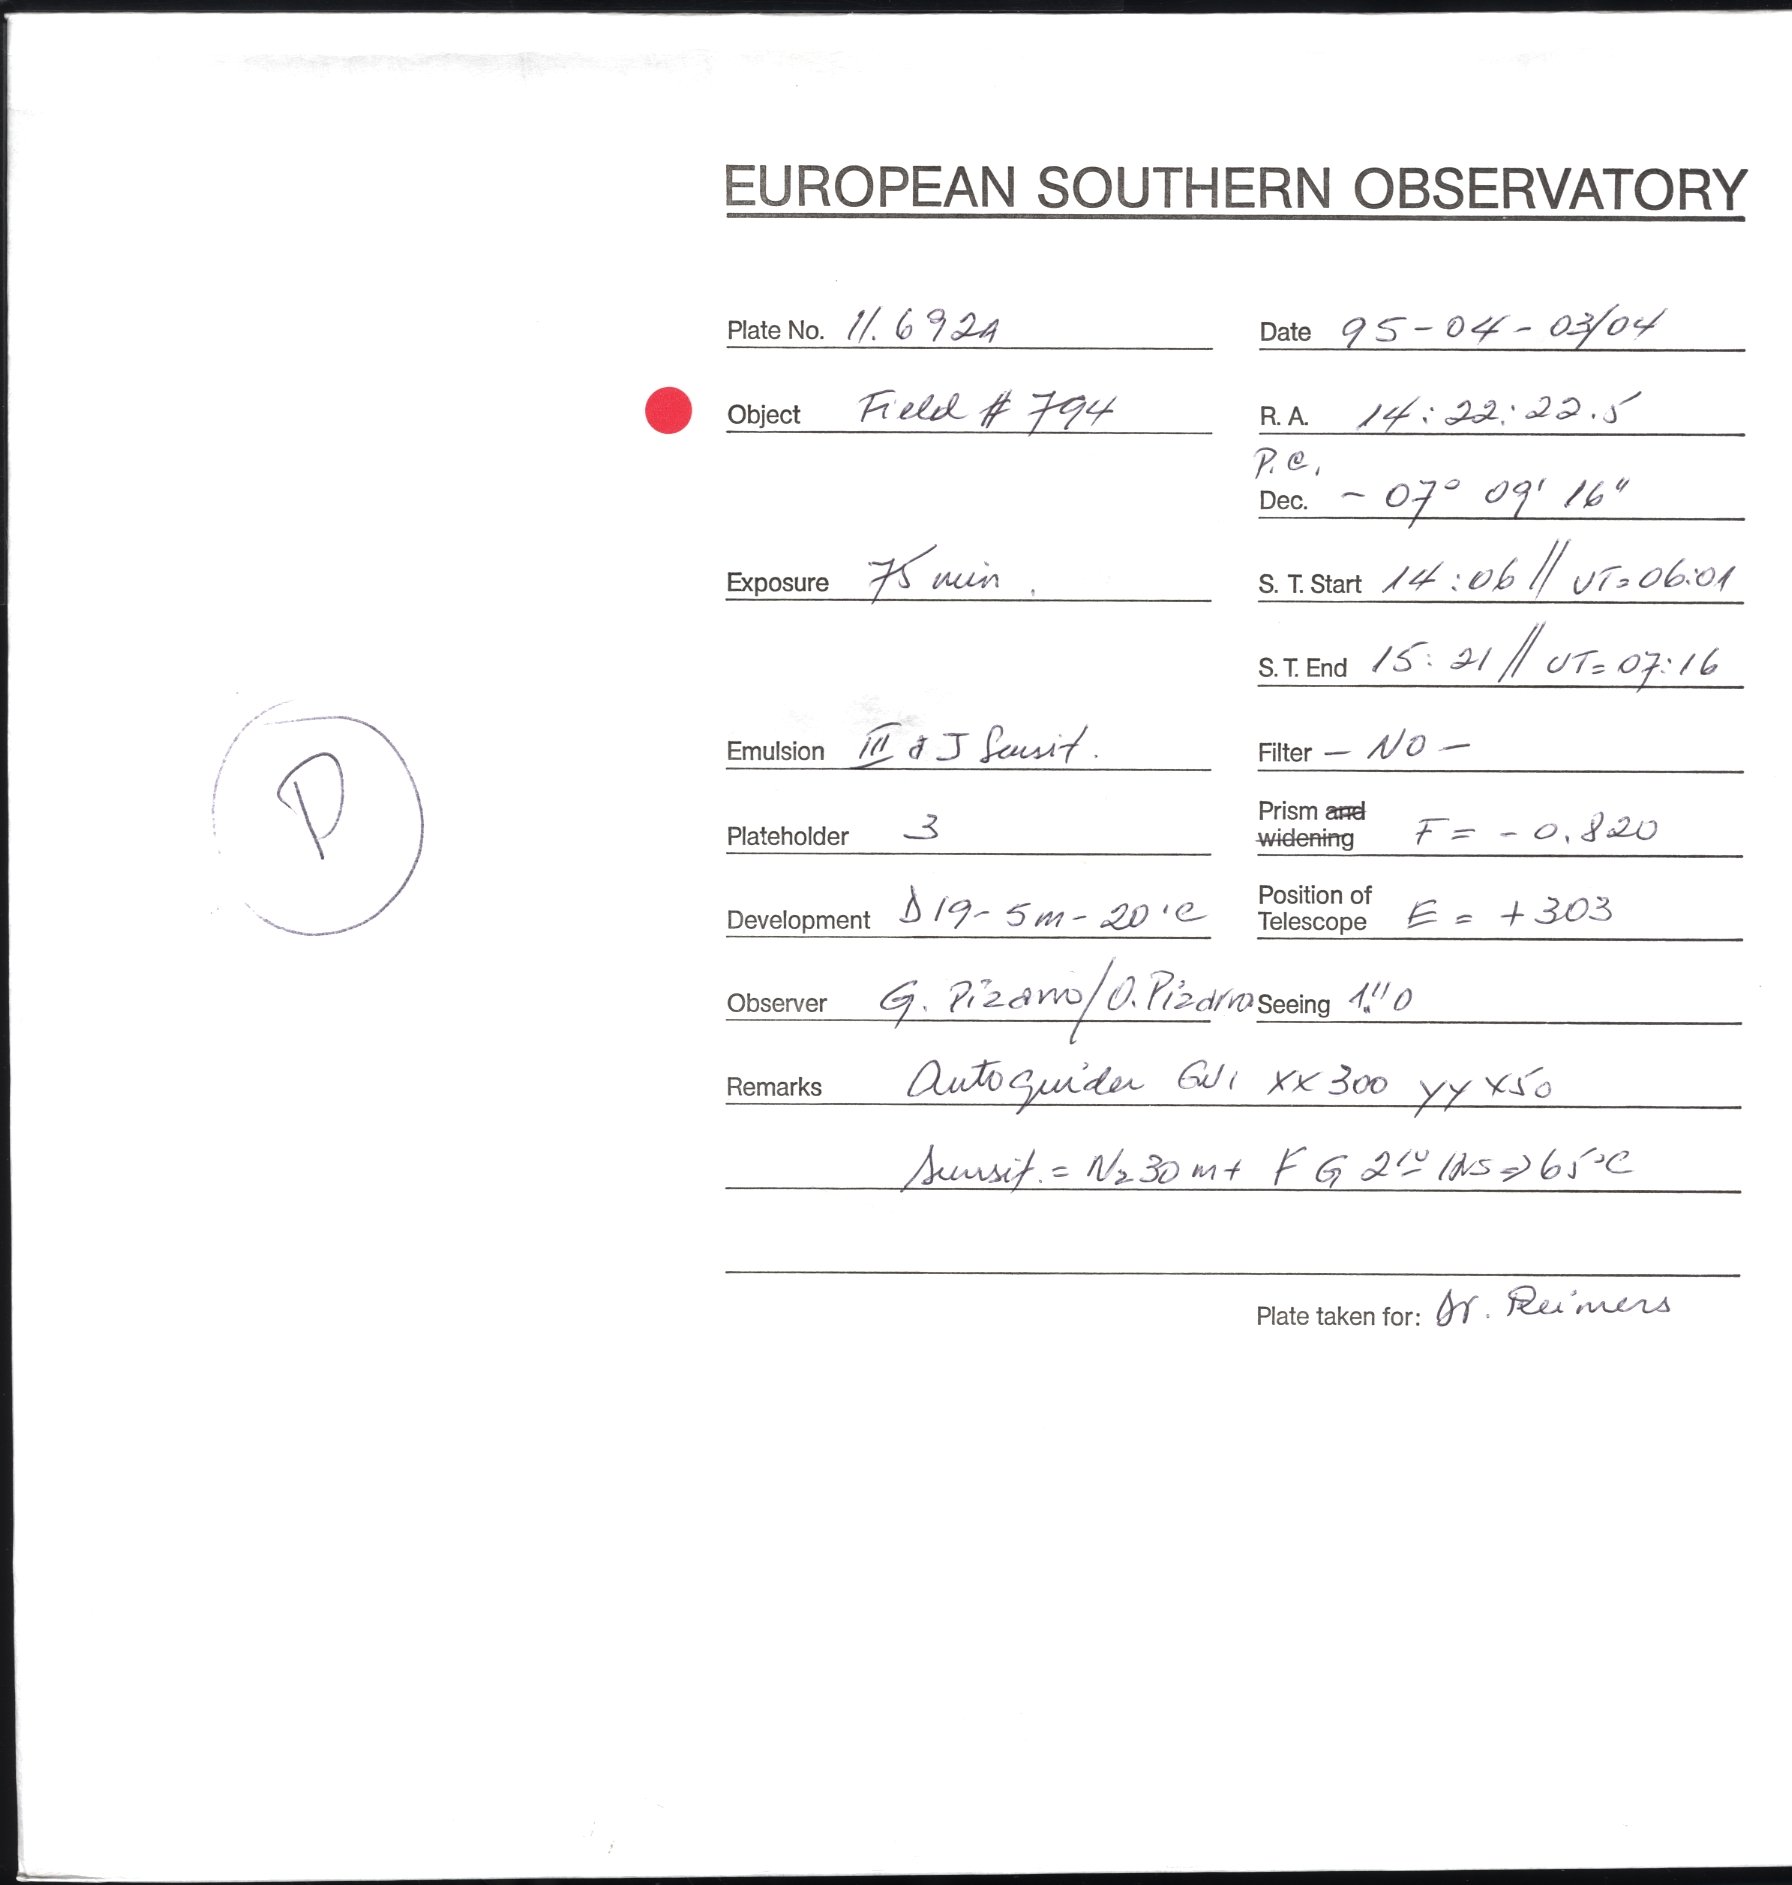 EUROPEAN SOUTHERN OBSERVATORY
Plate No. 11.692A Date 95-04-03/04
Object Field # 794 R. A. 14:22:22.5
P.C.
Dec. - 07° 09' 16"
Exposure 75 min. S. T. Start 14:06 // UT=06:01
S. T. End 15:21 // UT=07:16
Emulsion III a J Sensit. Filter - NO -
Plateholder 3 Prism and widening F = - 0.820
Development D19- 5m- 20°C Position of Telescope E = +303
Observer G. Pizarro/O. Pizarro Seeing 1."0
Remarks Autoguider XX 300 YY X50
Sensit. = N2 30 m+ F G => 65°C
Plate taken for: Dr. Reimers
P